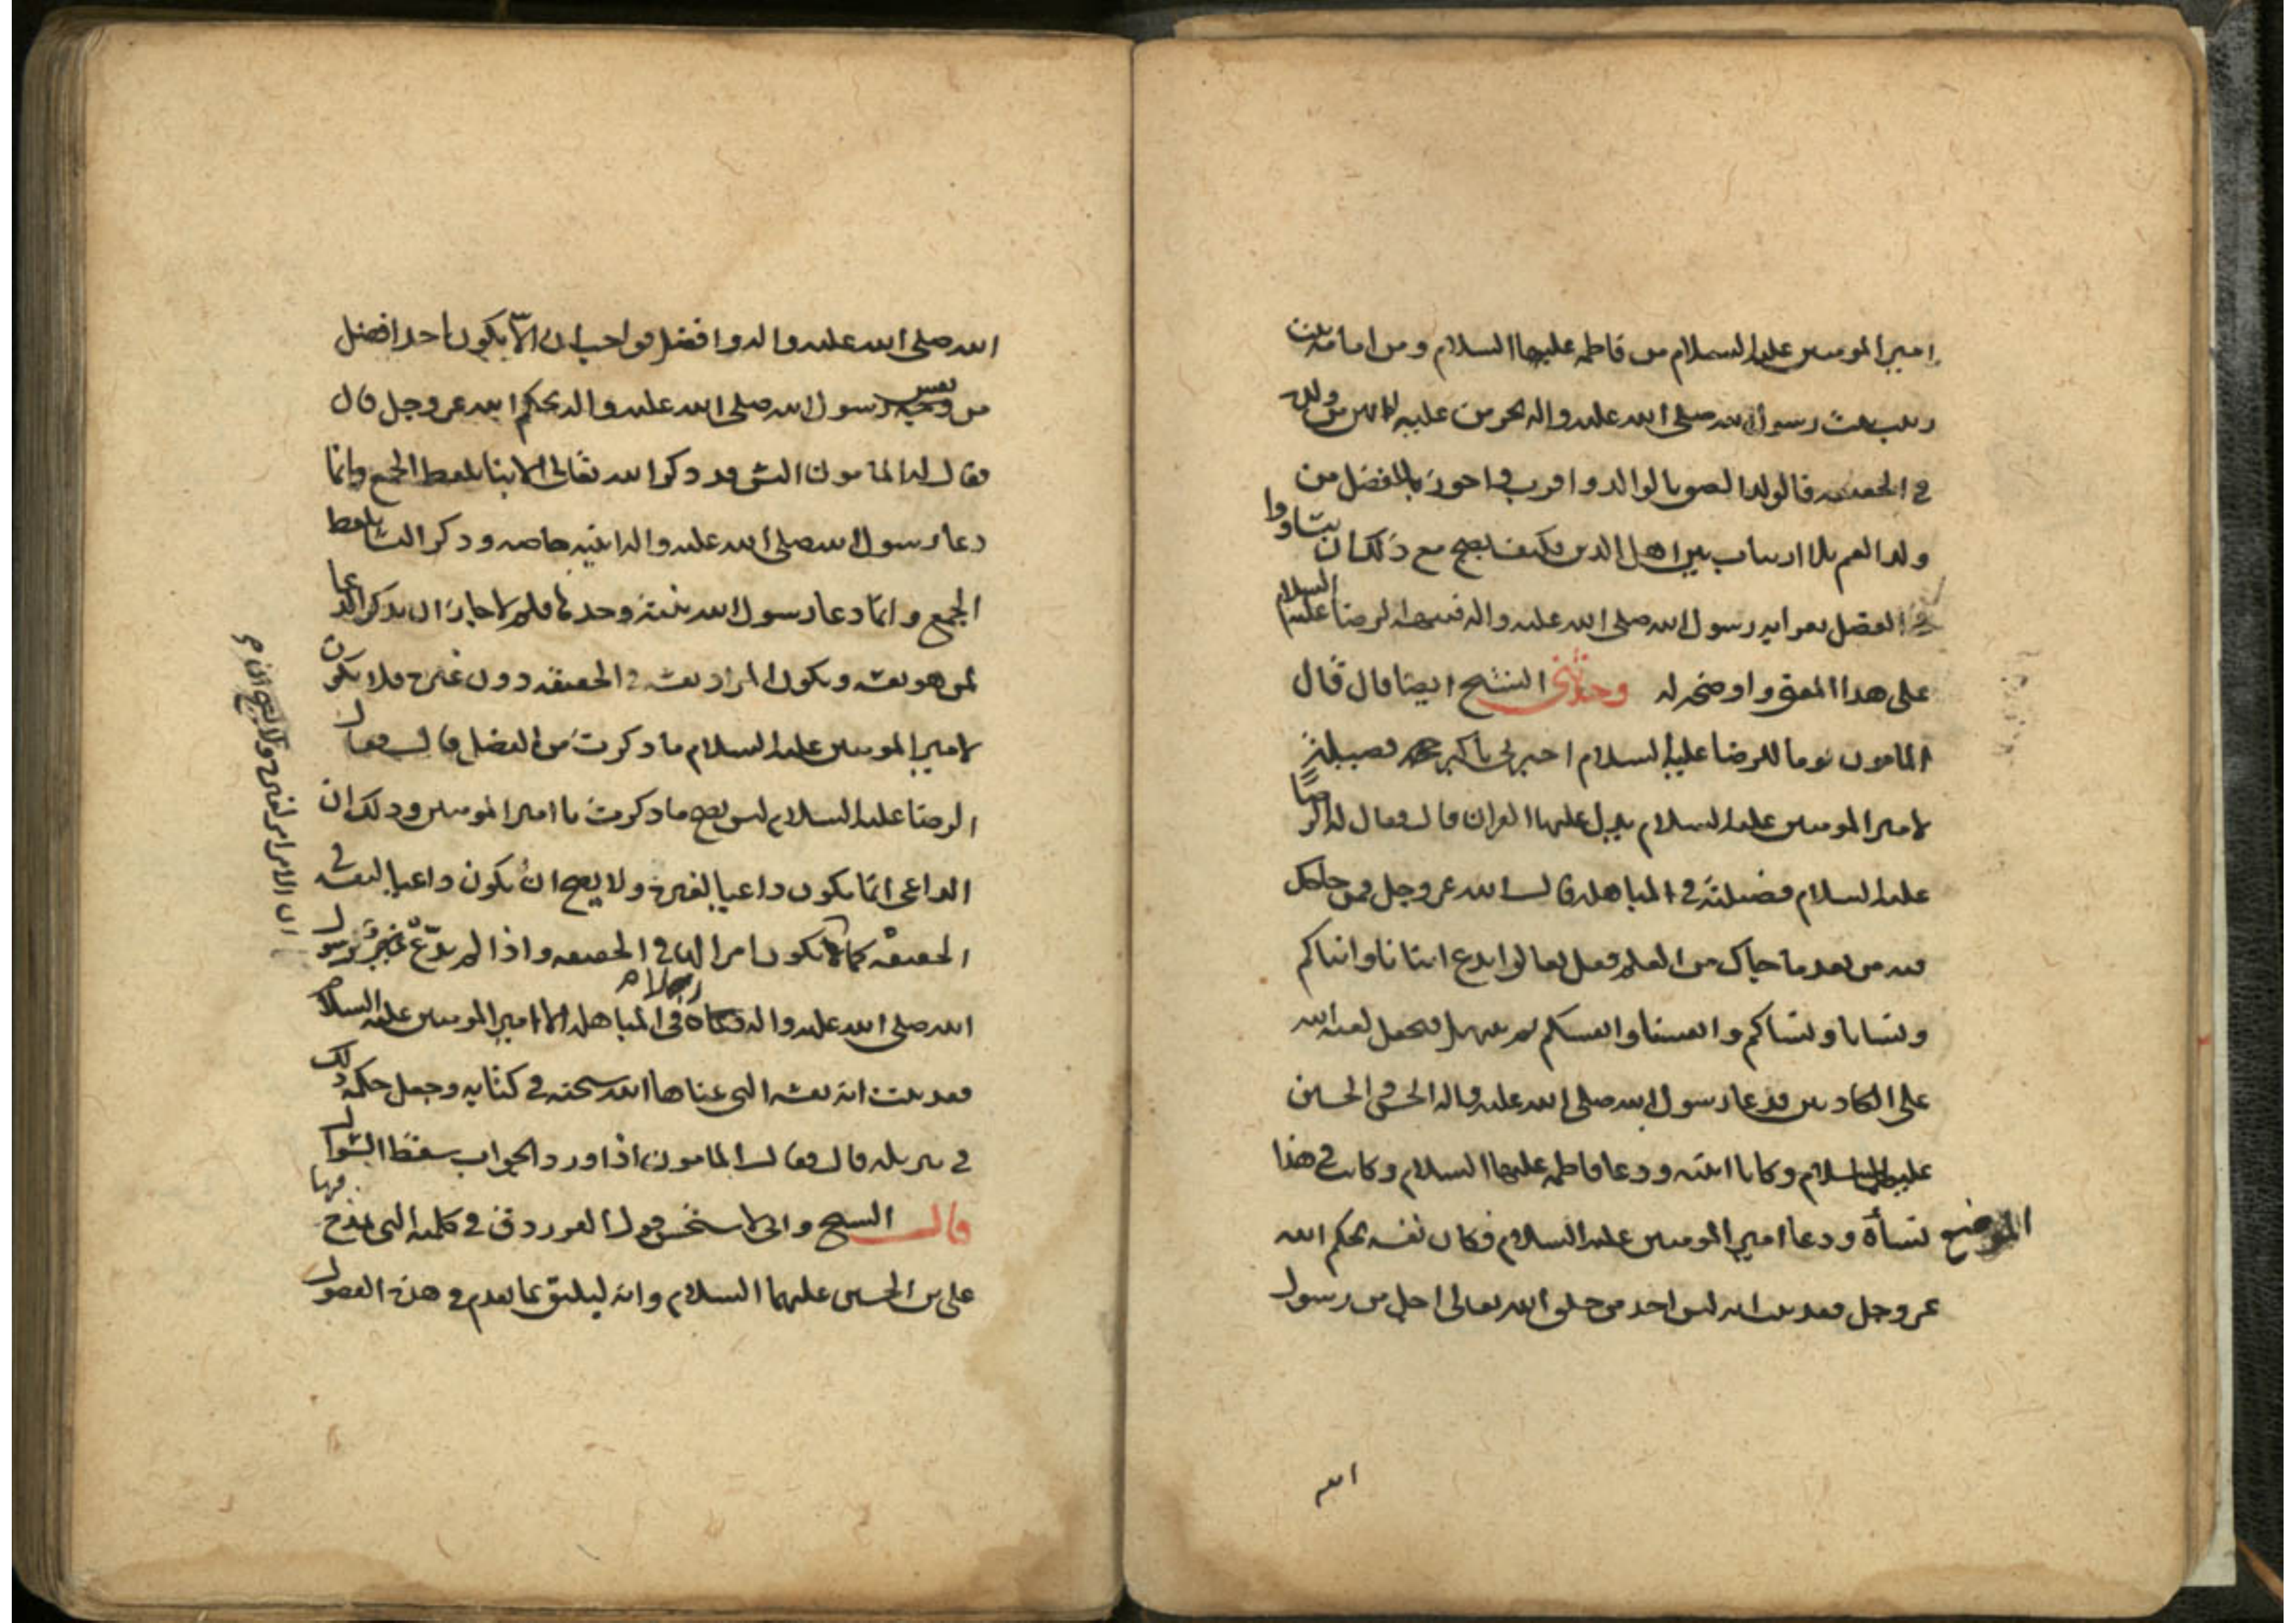 امير المومنين عليه السلام من فاطمه عليها السلام ومن امامه بنت
زينب بنت رسول الله صلى الله عليه واله لحرمن عليه لانهن من ولده
في الحقيقه فالولد الصق بالوالد واقرب واحوز بالفضل من
ولد العم بلا ارتياب بين اهل الدين فكيف يصح مع ذلك ان يتساووا
في الفضل بقرابه رسول الله صلى الله عليه واله فنبهه الرضا عليه السلام
على هذا المعنى واوضحه له وحدثني الشيخ ايضا قال قال
المامون يوما للرضا عليه السلام اخبرني باكبر فضيلة
لامير المومنين عليه السلام يدل عليها القران قال فقال له الرضا
عليه السلام فضيلته في المباهله قال الله عز وجل فمن حاجك
فيه من بعد ما جاك من العلم فقل تعالوا ندع ابنانا وابناكم
ونسانا ونساكم وانفسنا وانفسكم ثم نبتهل فنجعل لعنه الله
على الكاذبين فدعا رسول الله صلى الله عليه واله الحسن والحسين
عليهما السلام وكانا ابنيه ودعا فاطمه عليها السلام وكانت في هذا
الموضع نسأه ودعا امير المومنين عليه السلام فكان نفسه بحكم الله
عز وجل فقد ثبت انه ليس احد من خلق الله تعالى اجل من رسول
الله
الله صلى الله عليه واله وافضل فواجب ان الا يكون احد افضل
من نفس رسول الله صلى الله عليه واله بحكم الله عز وجل قال
فقال له المامون اليس قد ذكر الله تعالى الابنا بلفظ الجمع وانما
دعا رسول الله صلى الله عليه واله ابنيه خاصه وذكر النسا بلفظ
الجمع وانما دعا رسول الله بنته وحدها فلم لا جاز ان يذكر الدعا
لمن هو نفسه ويكون المراد نفسه في الحقيقه دون غيره فلا يكون
لامير المومنين عليه السلام ما ذكرت من الفضل قال فقال
الرضا عليه السلام ليس يصح ما ذكرت يا امير المومنين وذلك ان
الداعي انما يكون داعيا لغيره ولا يصح ان يكون داعيا لنفسه في
الحقيقه كما لا يكون امرا لها في الحقيقه واذا لم يدع رسول
الله صلى الله عليه واله رجلا في المباهله الا امير المومنين عليه السلام
فقد ثبت انه نفسه التي عناها الله سبحنه في كتابه وجعل حكمه ذلك
في تنزيله قال فقال المامون اذا ورد الجواب سقط السوال
قال الشيخ واني لاستحسن قول الفرزدق في كلمته التي يمدح فيها
على بن الحسين عليهما السلام وانه ليليق بما تقدم في هذه الفصول
ان الامر امر لغيره ولا يصح ان